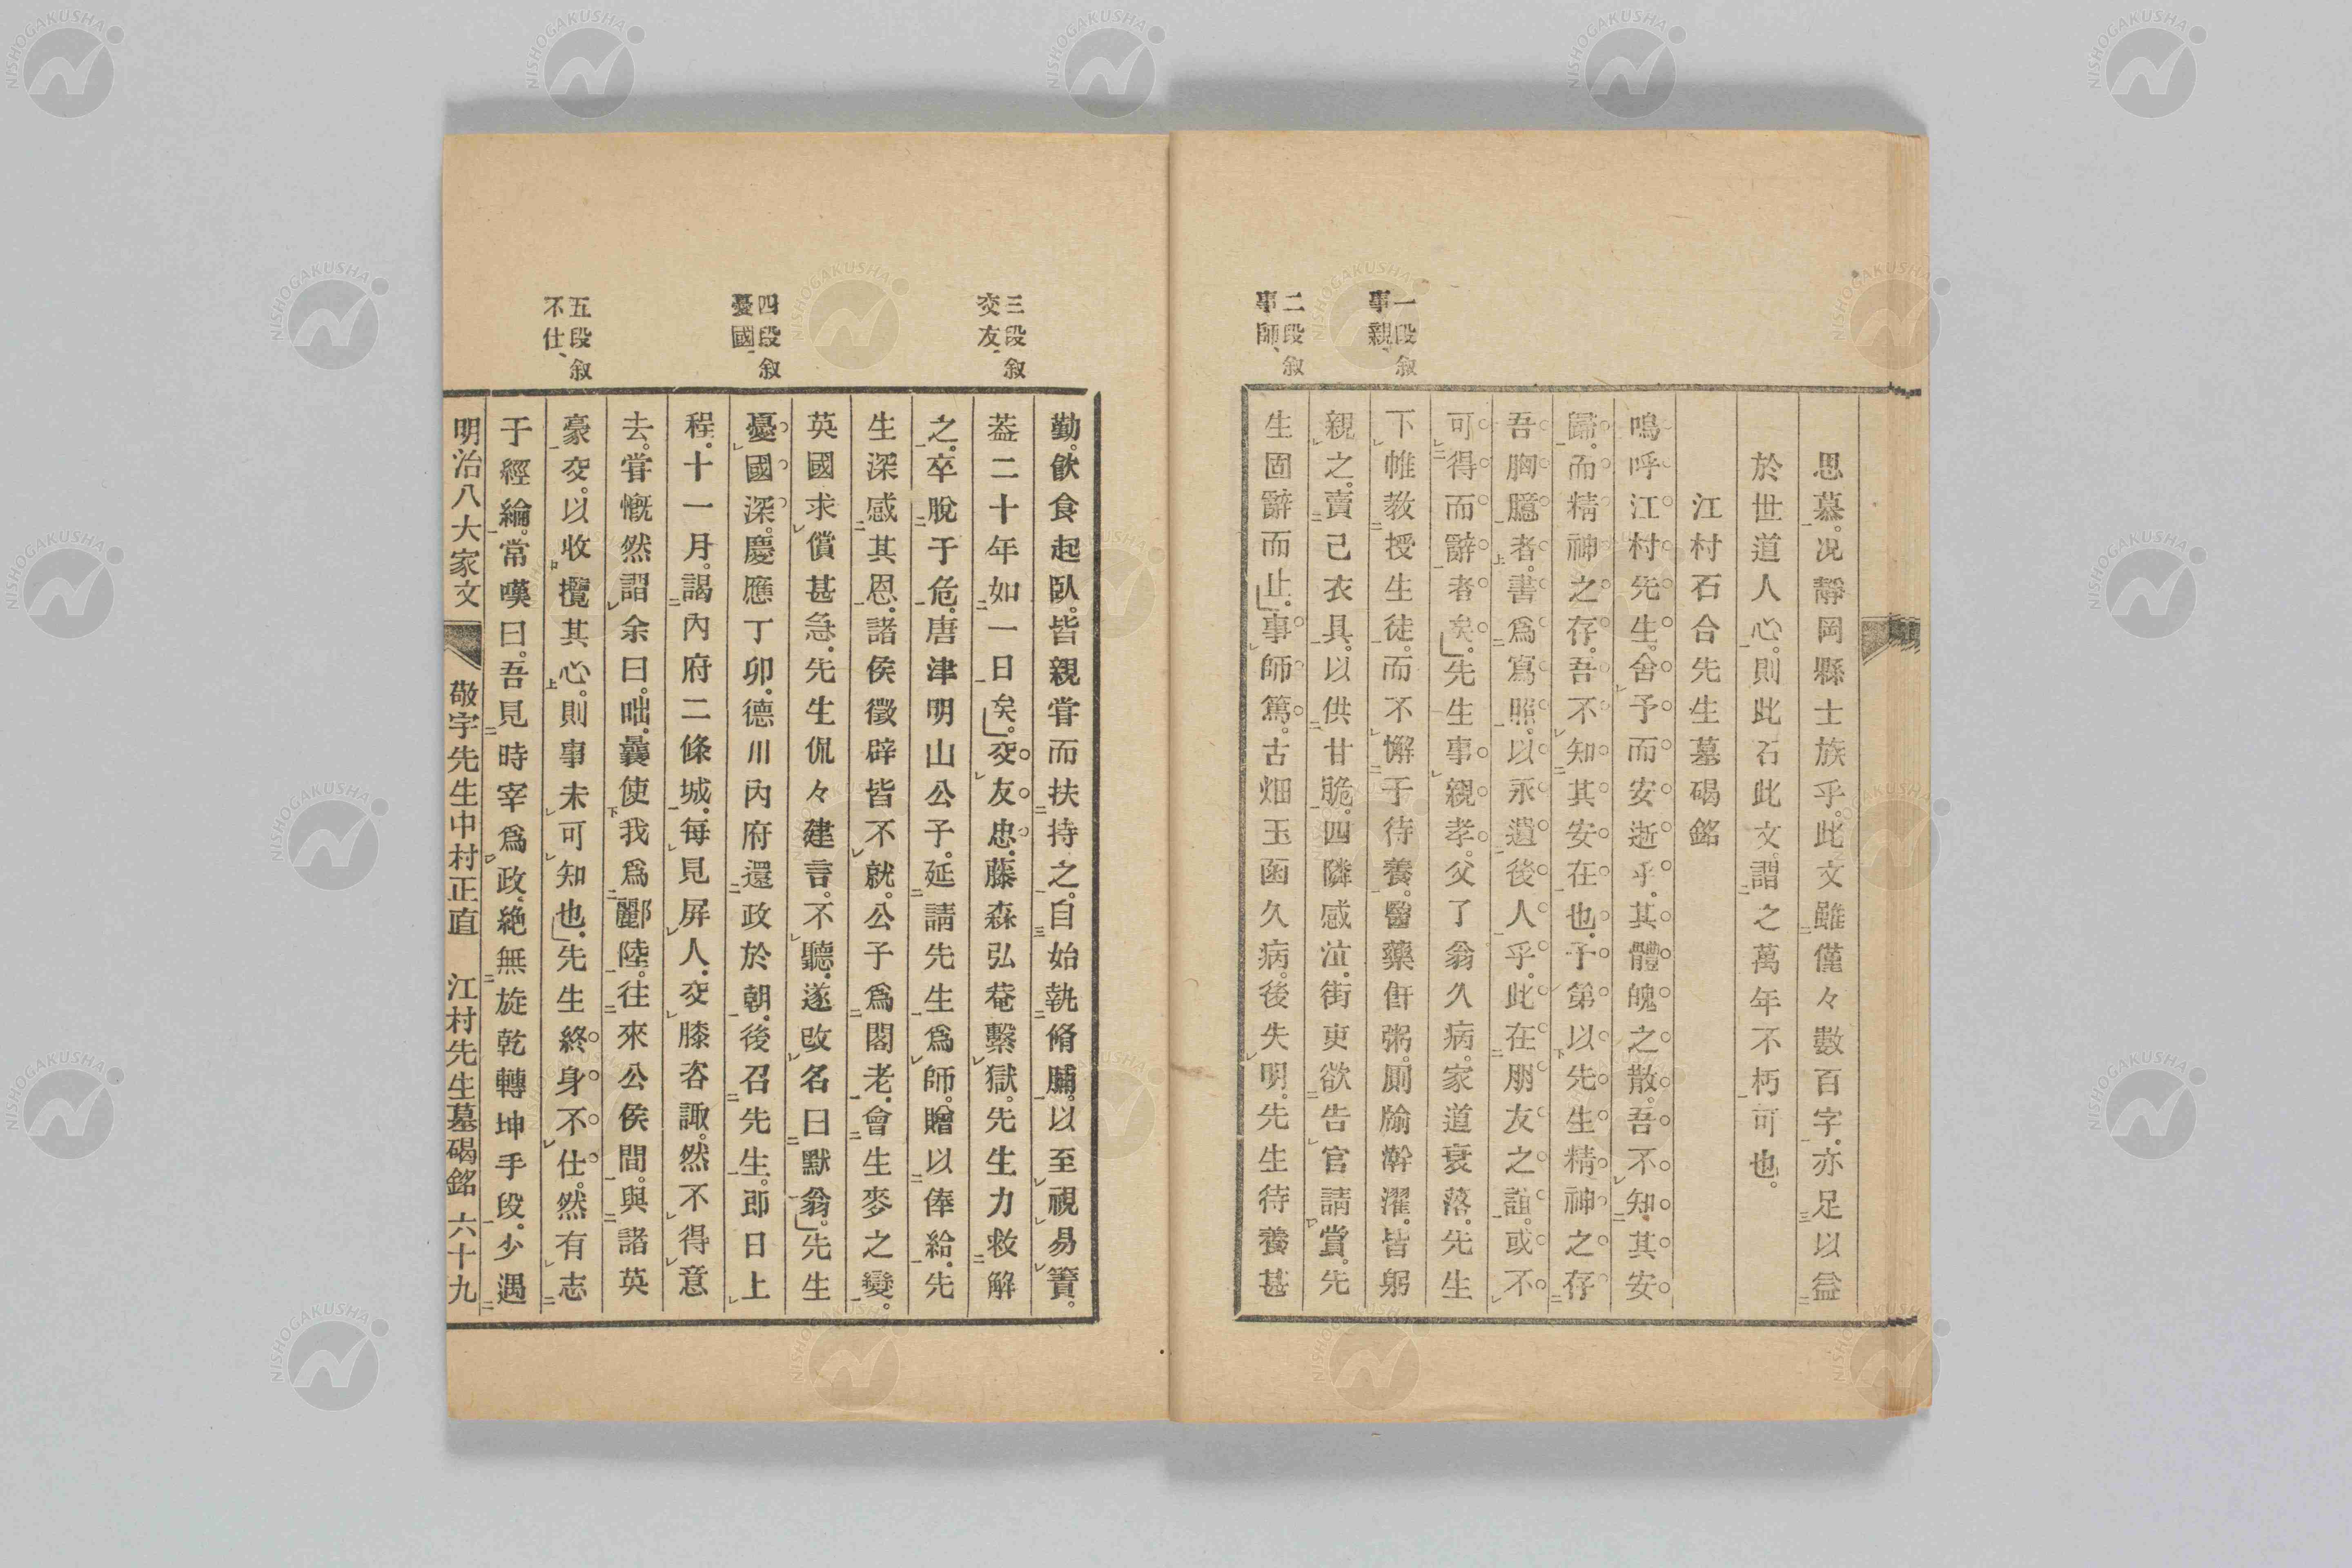 思慕。况靜岡縣士族乎。此文雖僅々數百字。亦足以益
於世道人心。則此石此文。謂之萬年不朽可也。
江村石合先生墓碣銘
嗚呼江村先生。舍予而安逝乎。其體魄之散。吾不知其安
歸。而精神之存。吾不知其安在也。予第以先生精神之存
吾胸臆者。書爲寫照。以永遺後人乎。此在朋友之誼。或不
可得而辭者矣。先生事親孝。父了翁久病。家道衰落。先生
下帷教授生徒。而不懈于待養。醫藥毌粥。厠牏澣濯。皆躬
親之。賣己衣具。以供甘脆。四隣感泣。街吏欲告官請賞。先
生固辭而止。事師篤。古畑玉函久病。後失明。先生待養甚
一段叙
事親、
二段叙
事師、
勤。飮食起臥。皆親甞而扶持之。自始執脩脯。以至視易簀。
葢二十年如一日矣。交友忠。藤森弘菴繫獄。先生力救解
之。卒脫于危。唐津明山公子。延請先生爲師。贈以俸給。先
生深感其恩。諸侯徵辟皆不就。公子爲閣老。會生麥之變。
英國求償甚急。先生侃々建言。不聽。遂改名曰默翁。先生
憂國深。慶應丁卯。德川內府還政於朝。後召先生。即日上
程。十一月。謁內府二條城。每見屏人。交膝咨諏。然不得意
去。甞慨然謂余曰。咄。曩使我爲酈陸。往來公侯間。與諸英
豪交。以收攬其心。則事未可知也。先生終身不仕。然有志
于經綸。常嘆曰。吾見時宰爲政。絶無旋乾轉坤手段。少遇
三段叙
交友、
四段叙
憂國、
五段叙
不仕、
明治八大家文 敬宇先生中村正直 江村先生墓碣銘 六十九
NISHOGAKUSHA